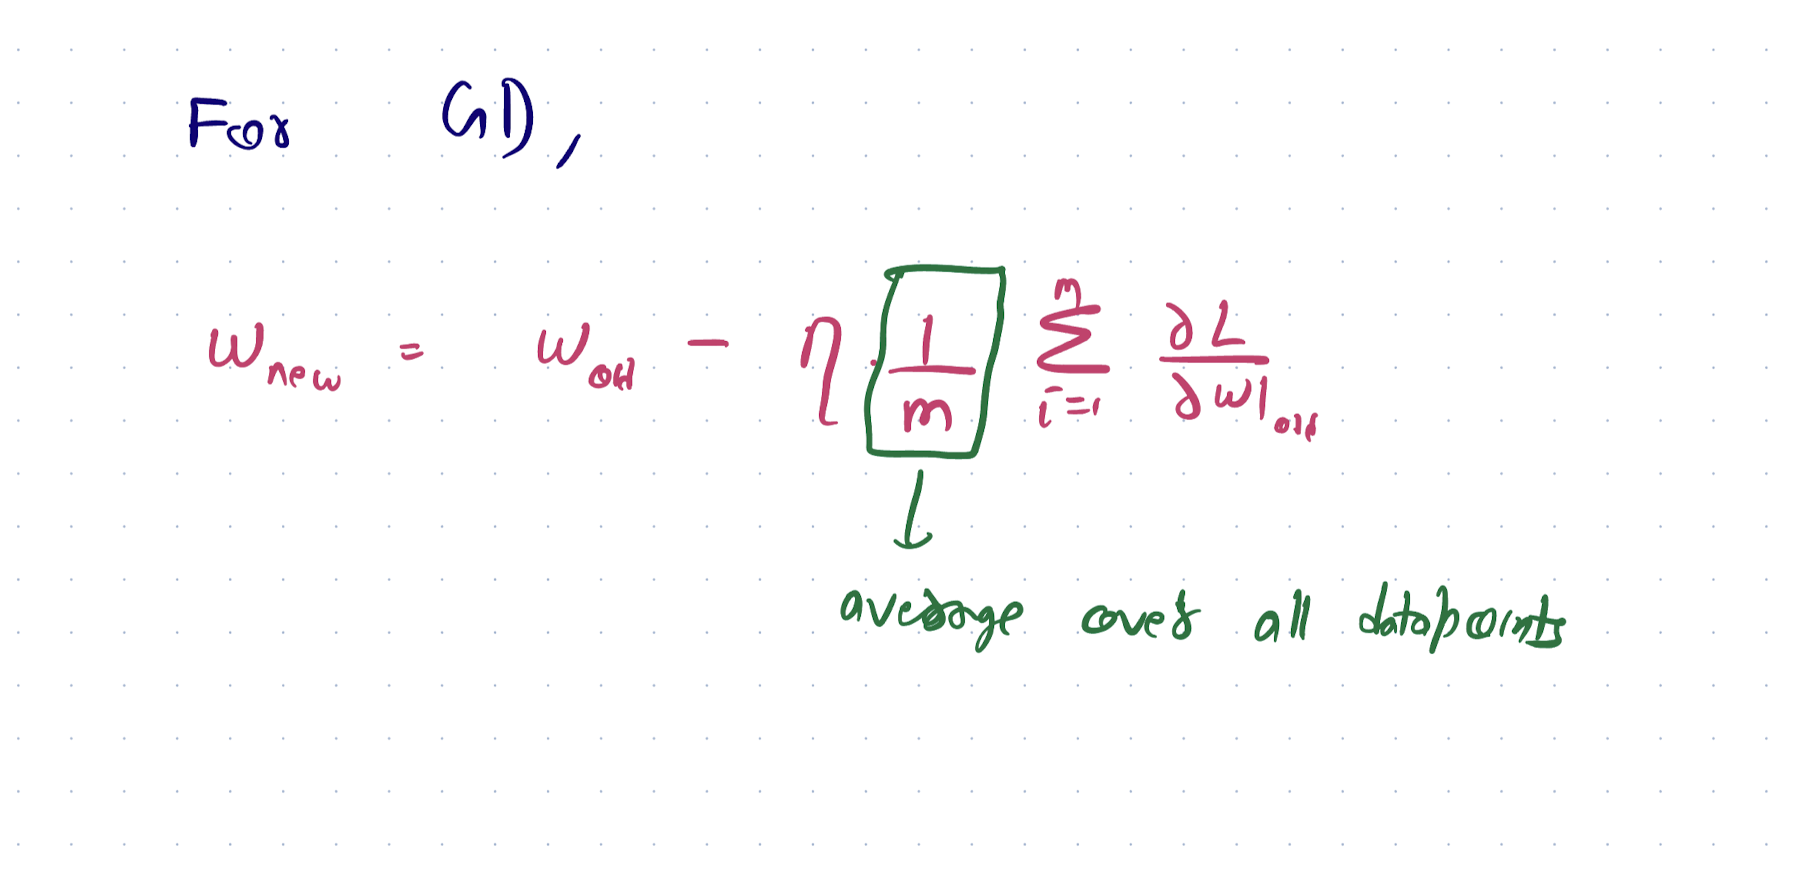 For GD,
w_new = w_old - η . 1/m Σ_{i=1}^{m} ∂L/∂w|_old
average over all datapoints